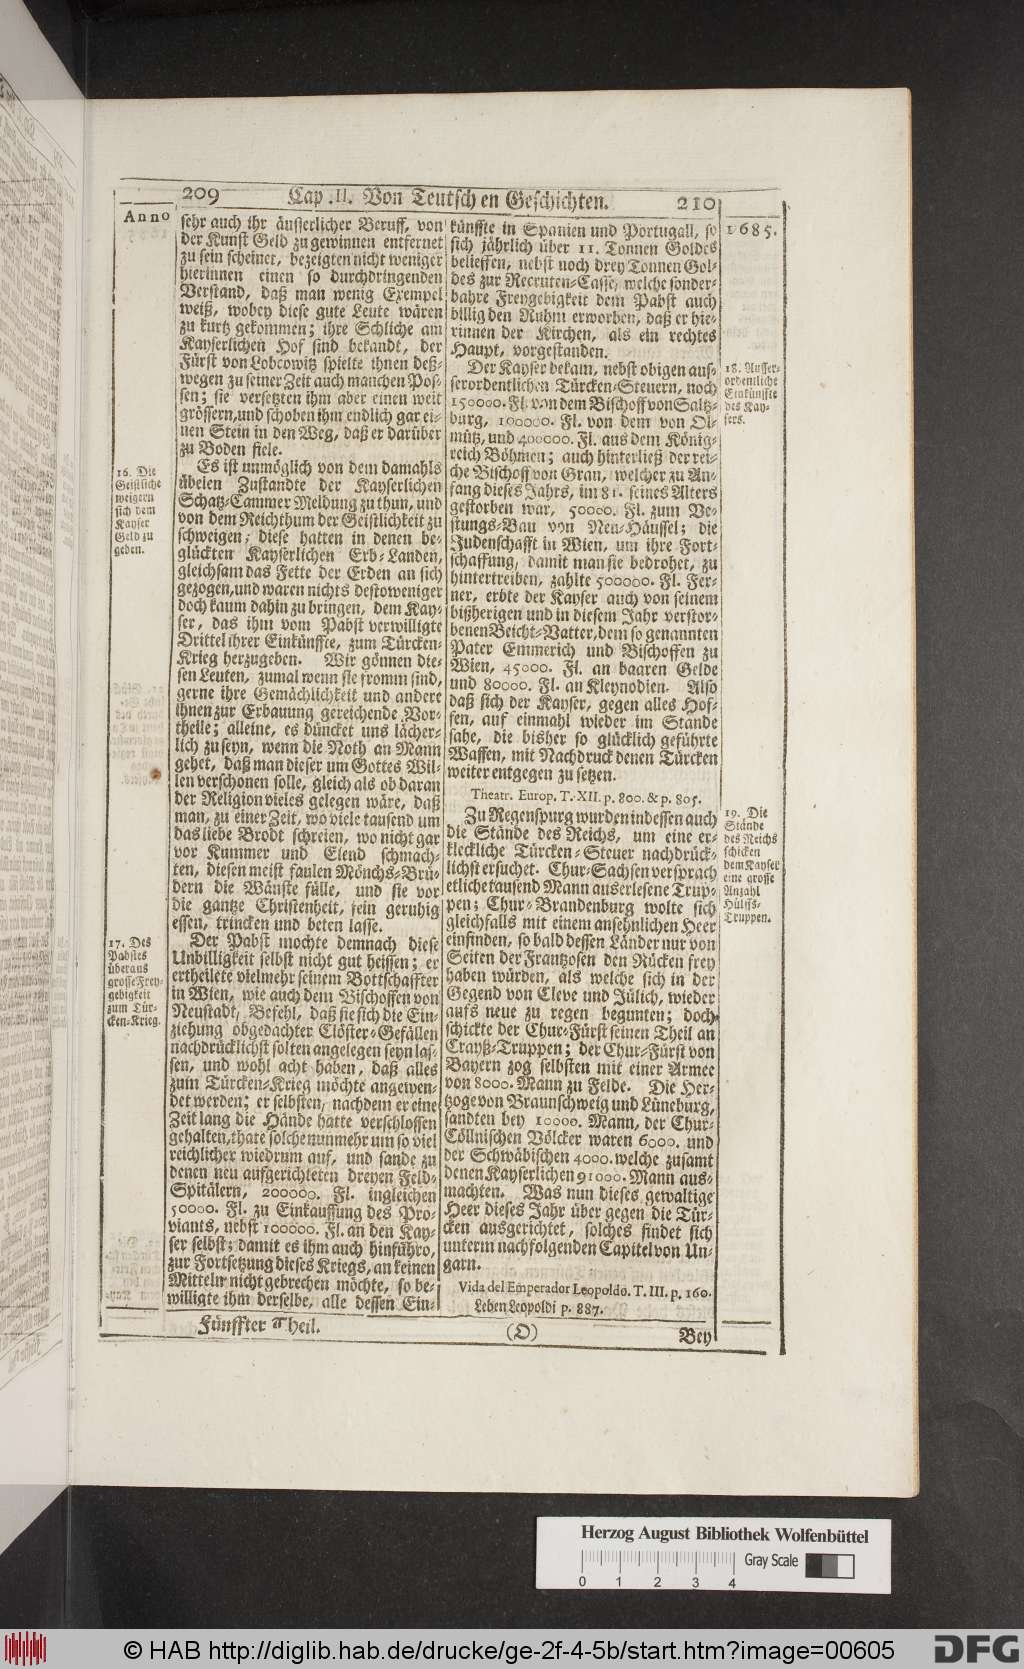 209 Cap. II. Von Teutschen Geschichten. 210
Anno
sehr auch ihr äusserlicher Beruff, von
der Kunst Geld zu gewinnen entfernet
zu sein scheinet, bezeigten nicht weniger
hierinnen einen so durchdringenden
Verstand, daß man wenig Exempel
weiß, wobey diese gute Leute wären
zu kurtz gekommen; ihre Schliche am
Kayserlichen Hof sind bekandt, der
Fürst von Lobcowitz spielte ihnen deß-
wegen zu seiner Zeit auch manchen Pos-
sen; sie versetzten ihm aber einen weit
grössern, und schoben ihm endlich gar ei-
nen Stein in den Weg, daß er darüber
zu Boden fiele.
16. Die
Geistliche
weigern
sich dem
Kayser
Geld zu
geben.
Es ist unmöglich von dem damahls
übelen Zustandte der Kayserlichen
Schatz-Cammer Meldung zu thun, und
von dem Reichthum der Geistlichkeit zu
schweigen; diese hatten in denen be-
glückten Kayserlichen Erb-Landen,
gleichsam das Fette der Erden an sich
gezogen, und waren nichts destoweniger
doch kaum dahin zu bringen, dem Kay-
ser, das ihm vom Pabst verwilligte
Drittel ihrer Einkünffte, zum Türcken-
Krieg herzugeben. Wir gönnen die-
sen Leuten, zumal wenn sie fromm sind,
gerne ihre Gemächlichkeit und andere
ihnen zur Erbauung gereichende Vor-
theile; alleine, es düncket uns lächer-
lich zu seyn, wenn die Noth an Mann
gehet, daß man dieser um Gottes Wil-
len verschonen solle, gleich als ob daran
der Religion vieles gelegen wäre, daß
man, zu einer Zeit, wo viele tausend um
das liebe Brodt schreien, wo nicht gar
vor Kummer und Elend schmach-
ten, diesen meist faulen Mönchs-Brü-
dern die Wänste fülle, und sie vor
die gantze Christenheit, fein geruhig
essen, trincken und beten lasse.
17. Des
Pabstes
überaus
grosse Frey-
gebigkeit
zum Tür-
cken-Krieg.
Der Pabst mochte demnach diese
Unbilligkeit selbst nicht gut heissen; er
ertheilete vielmehr seinem Bottschaffter
in Wien, wie auch dem Bischoffen von
Neustadt, Befehl, daß sie sich die Ein-
ziehung obgedachter Clöster-Gefällen
nachdrücklichst solten angelegen seyn las-
sen, und wohl acht haben, daß alles
zum Türcken-Krieg möchte angewen-
det werden; er selbsten, nachdem er eine
Zeit lang die Hände hatte verschlossen
gehalten, thate solche nunmehr um so viel
reichlicher wiedrum auf, und sande zu
denen neu aufgerichteten dreyen Feld-
Spitälern, 200000. Fl. ingleichen
50000. Fl. zu Einkauffung des Pro-
viants, nebst 100000. Fl. an den Kay-
ser selbst; damit es ihm auch hinführo,
zur Fortsetzung dieses Kriegs, an keinen
Mitteln nicht gebrechen möchte, so be-
willigte ihm derselbe, alle dessen Ein-
1685.
künffte in Spanien und Portugall, so
sich jährlich über 11. Tonnen Goldes
belieffen, nebst noch drey Tonnen Gol-
des zur Recruten-Casse, welche sonder-
bahre Freygebigkeit dem Pabst auch
billig den Ruhm erworben, daß er hie-
rinnen der Kirchen, als ein rechtes
Haupt, vorgestanden.
18. Ausser-
ordentliche
Einkünffte
des Kay-
sers.
Der Kayser bekam, nebst obigen aus-
serordentlichen Türcken-Steuern, noch
150000. Fl. von dem Bischoff von Saltz-
burg, 100000. Fl. von dem von Ol-
mütz, und 400000. Fl. aus dem König-
reich Böhmen; auch hinterließ der rei-
che Bischoff von Gran, welcher zu An-
fang dieses Jahrs, im 81. seines Alters
gestorben war, 50000. Fl. zum Ve-
stungs-Bau von Neu-Häussel; die
Judenschafft in Wien, um ihre Fort-
schaffung, damit man sie bedrohet, zu
hintertreiben, zahlte 500000. Fl. Fer-
ner, erbte der Kayser auch von seinem
bißherigen und in diesem Jahr verstor-
benen Beicht-Vatter, dem so genannten
Pater Emmerich und Bischoffen zu
Wien, 45000. Fl. an baaren Gelde
und 80000. Fl. an Kleynodien. Also
daß sich der Kayser, gegen alles Hof-
fen, auf einmahl wieder im Stande
sahe, die bisher so glücklich geführte
Waffen, mit Nachdruck denen Türcken
weiter entgegen zu setzen.
Theatr. Europ. T. XII. p. 800. & p. 805.
19. Die
Stände
des Reichs
schicken
dem Kayser
eine grosse
Anzahl
Hülffs-
Truppen.
Zu Regenspurg wurden indessen auch
die Stände des Reichs, um eine er-
kleckliche Türcken-Steuer nachdrück-
lichst ersuchet. Chur-Sachsen versprach
etliche tausend Mann auserlesene Trup-
pen; Chur-Brandenburg wolte sich
gleichfalls mit einem ansehnlichen Heer
einfinden, so bald dessen Länder nur von
Seiten der Frantzosen den Rücken frey
haben würden, als welche sich in der
Gegend von Cleve und Jülich, wieder
aufs neue zu regen begunten; doch
schickte der Chur-Fürst seinen Theil an
Crayß-Truppen; der Chur-Fürst von
Bayern zog selbsten mit einer Armee
von 8000. Mann zu Felde. Die Her-
tzoge von Braunschweig und Lüneburg,
sandten bey 10000. Mann, der Chur-
Cöllnischen Völcker waren 6000. und
der Schwäbischen 4000. welche zusamt
denen Kayserlichen 91000. Mann aus-
machten. Was nun dieses gewaltige
Heer dieses Jahr über gegen die Tür-
cken ausgerichtet, solches findet sich
unterm nachfolgenden Capitel von Un-
garn.
Vida del Emperador Leopoldo. T. III. p. 160.
Leben Leopoldi p. 887.
Fünffter Theil. (O) Bey
Herzog August Bibliothek Wolfenbüttel
Gray Scale
0 1 2 3 4
© HAB http://diglib.hab.de/drucke/ge-2f-4-5b/start.htm?image=00605
DFG